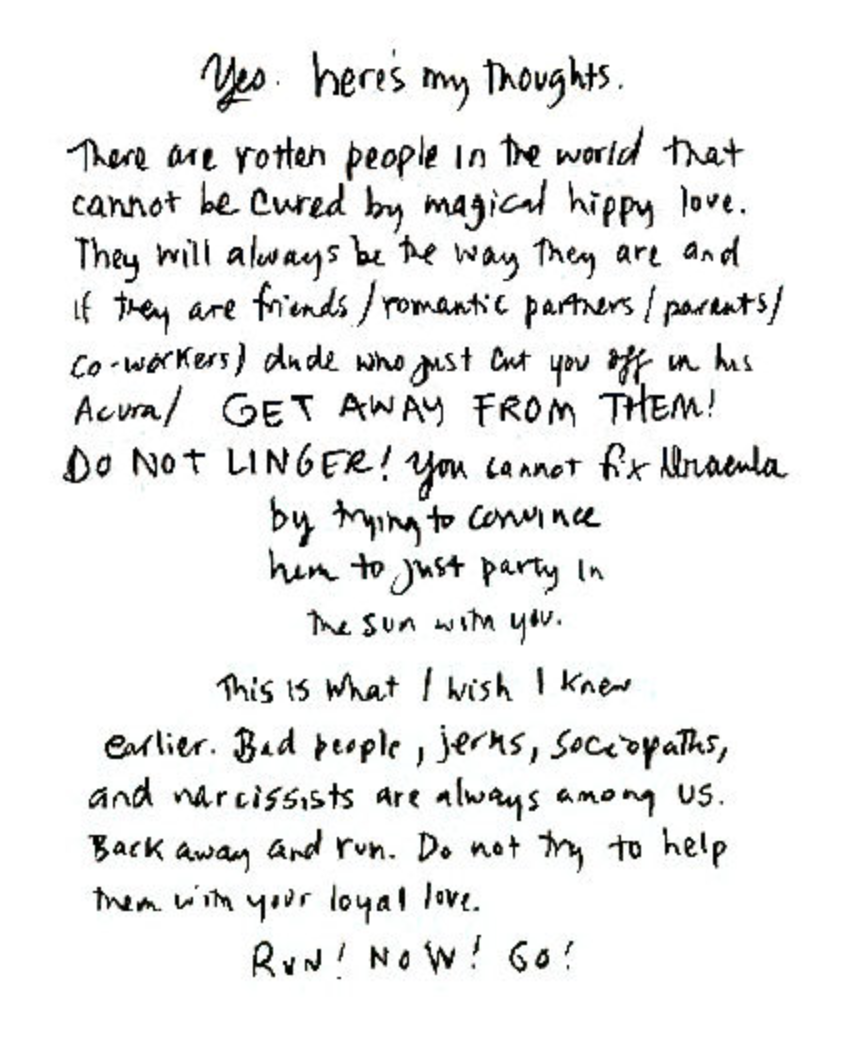 Yes. here's my thoughts.
There are rotten people in the world that
cannot be cured by magical hippy love.
They will always be the way they are and
if they are friends/romantic partners/parents/
co-workers/dude who just cut you off in his
Acura/ GET AWAY FROM THEM!
DO NOT LINGER! You cannot fix Dracula
by trying to convince
him to just party in
the sun with you.
This is what I wish I knew
earlier. Bad people, jerks, sociopaths,
and narcissists are always among us.
Back away and run. Do not try to help
them with your loyal love.
RUN! NOW! GO!